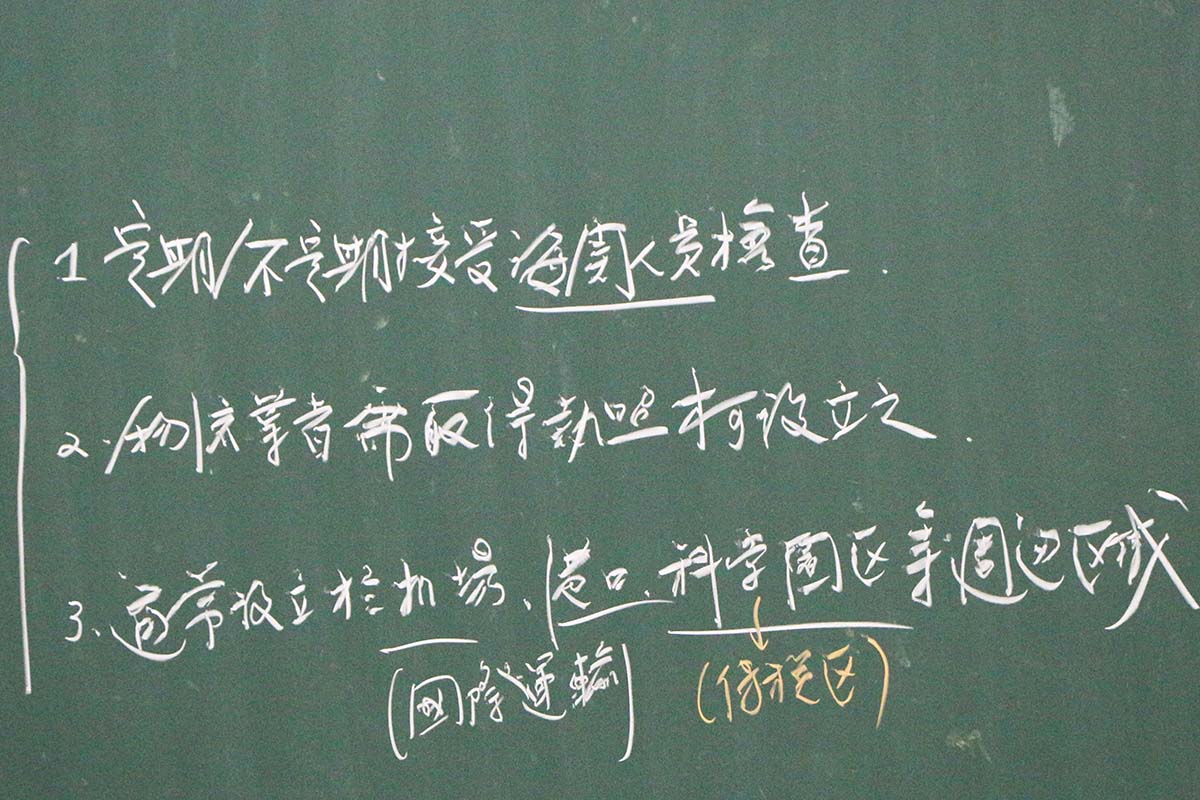 1 定期/不定期接受海関人员檢查.
2. 物流業者需取得執照才可設立之.
3、通常設立於机場、港口、科学園区等週边区域
(國際運輸) (保税区)